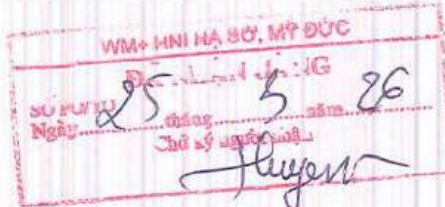 WM+ HNI HẠ SỞ, MỸ ĐỨC
Ngày 25 tháng 5 năm 26
Chữ ký người
Huyen